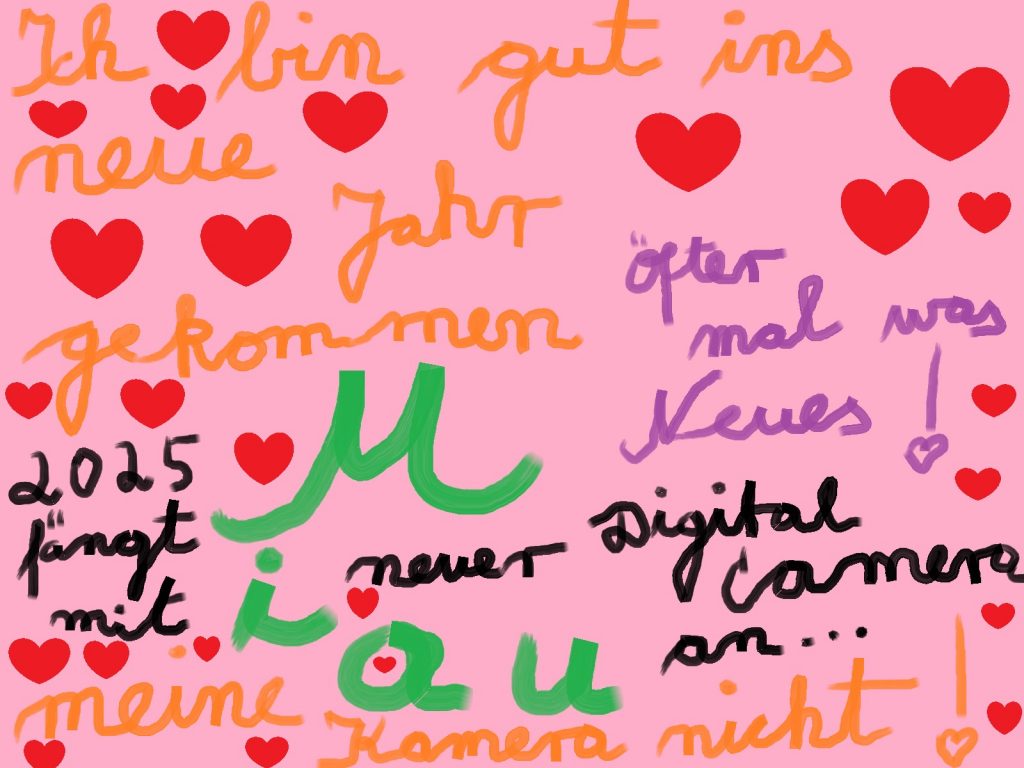 Ich bin gut ins
neue
Jahr
gekommen
öfter
mal was
Neues !
M
i
au
2025
fängt
mit
neuer Digital
Camera
an...
meine Kamera nicht !